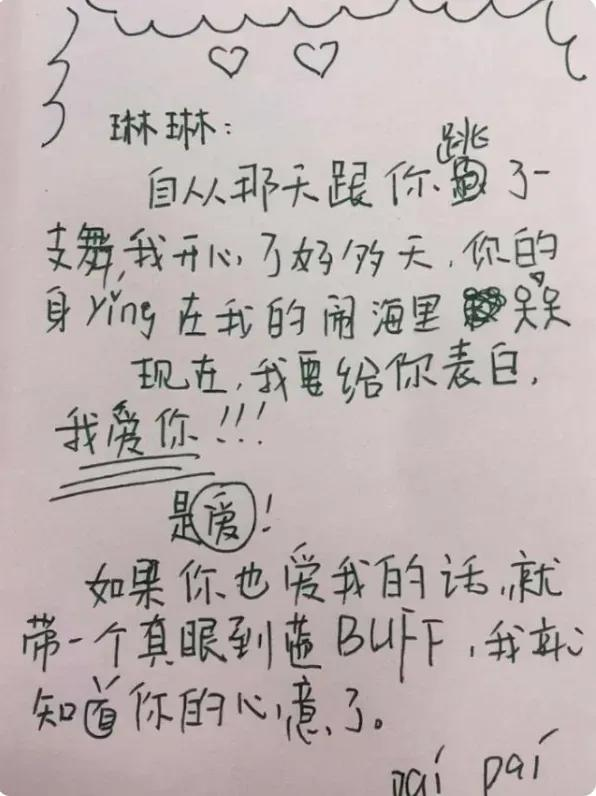 琳琳:
自从那天跟你跳了一
支舞,我开心了好多天,你的
身ying在我的闹海里 哭哭
现在,我要给你表白,
我爱你!!!
是爱!
如果你也爱我的话,就
带一个真眼到蓝BUFF,我就
知道你的心意了。
pai pai